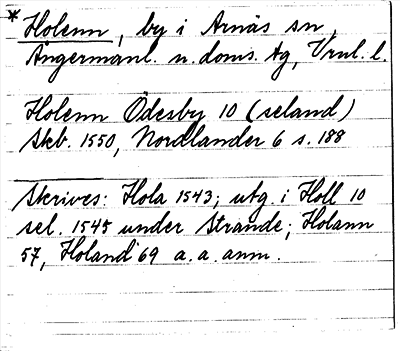 * Holenn, by i Arnäs sn,
Ångermanl. n. doms. tg, Vrnl. l.
Holenn Ödesby 10 (seland)
Skb. 1550, Nordlander 6 s. 188
Skrives: Hola 1543; utg. i Holl 10
sel. 1545 under Strande; Holann
57, Holand 69 a. a. anm.